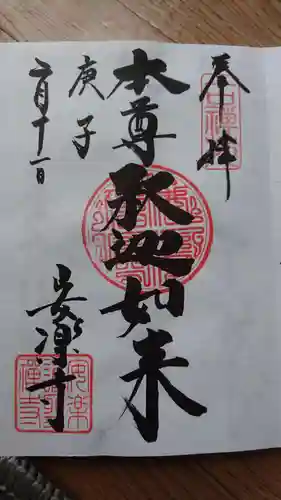 奉拝
本尊釈迦如来
庚子
二月十一日
安楽寺